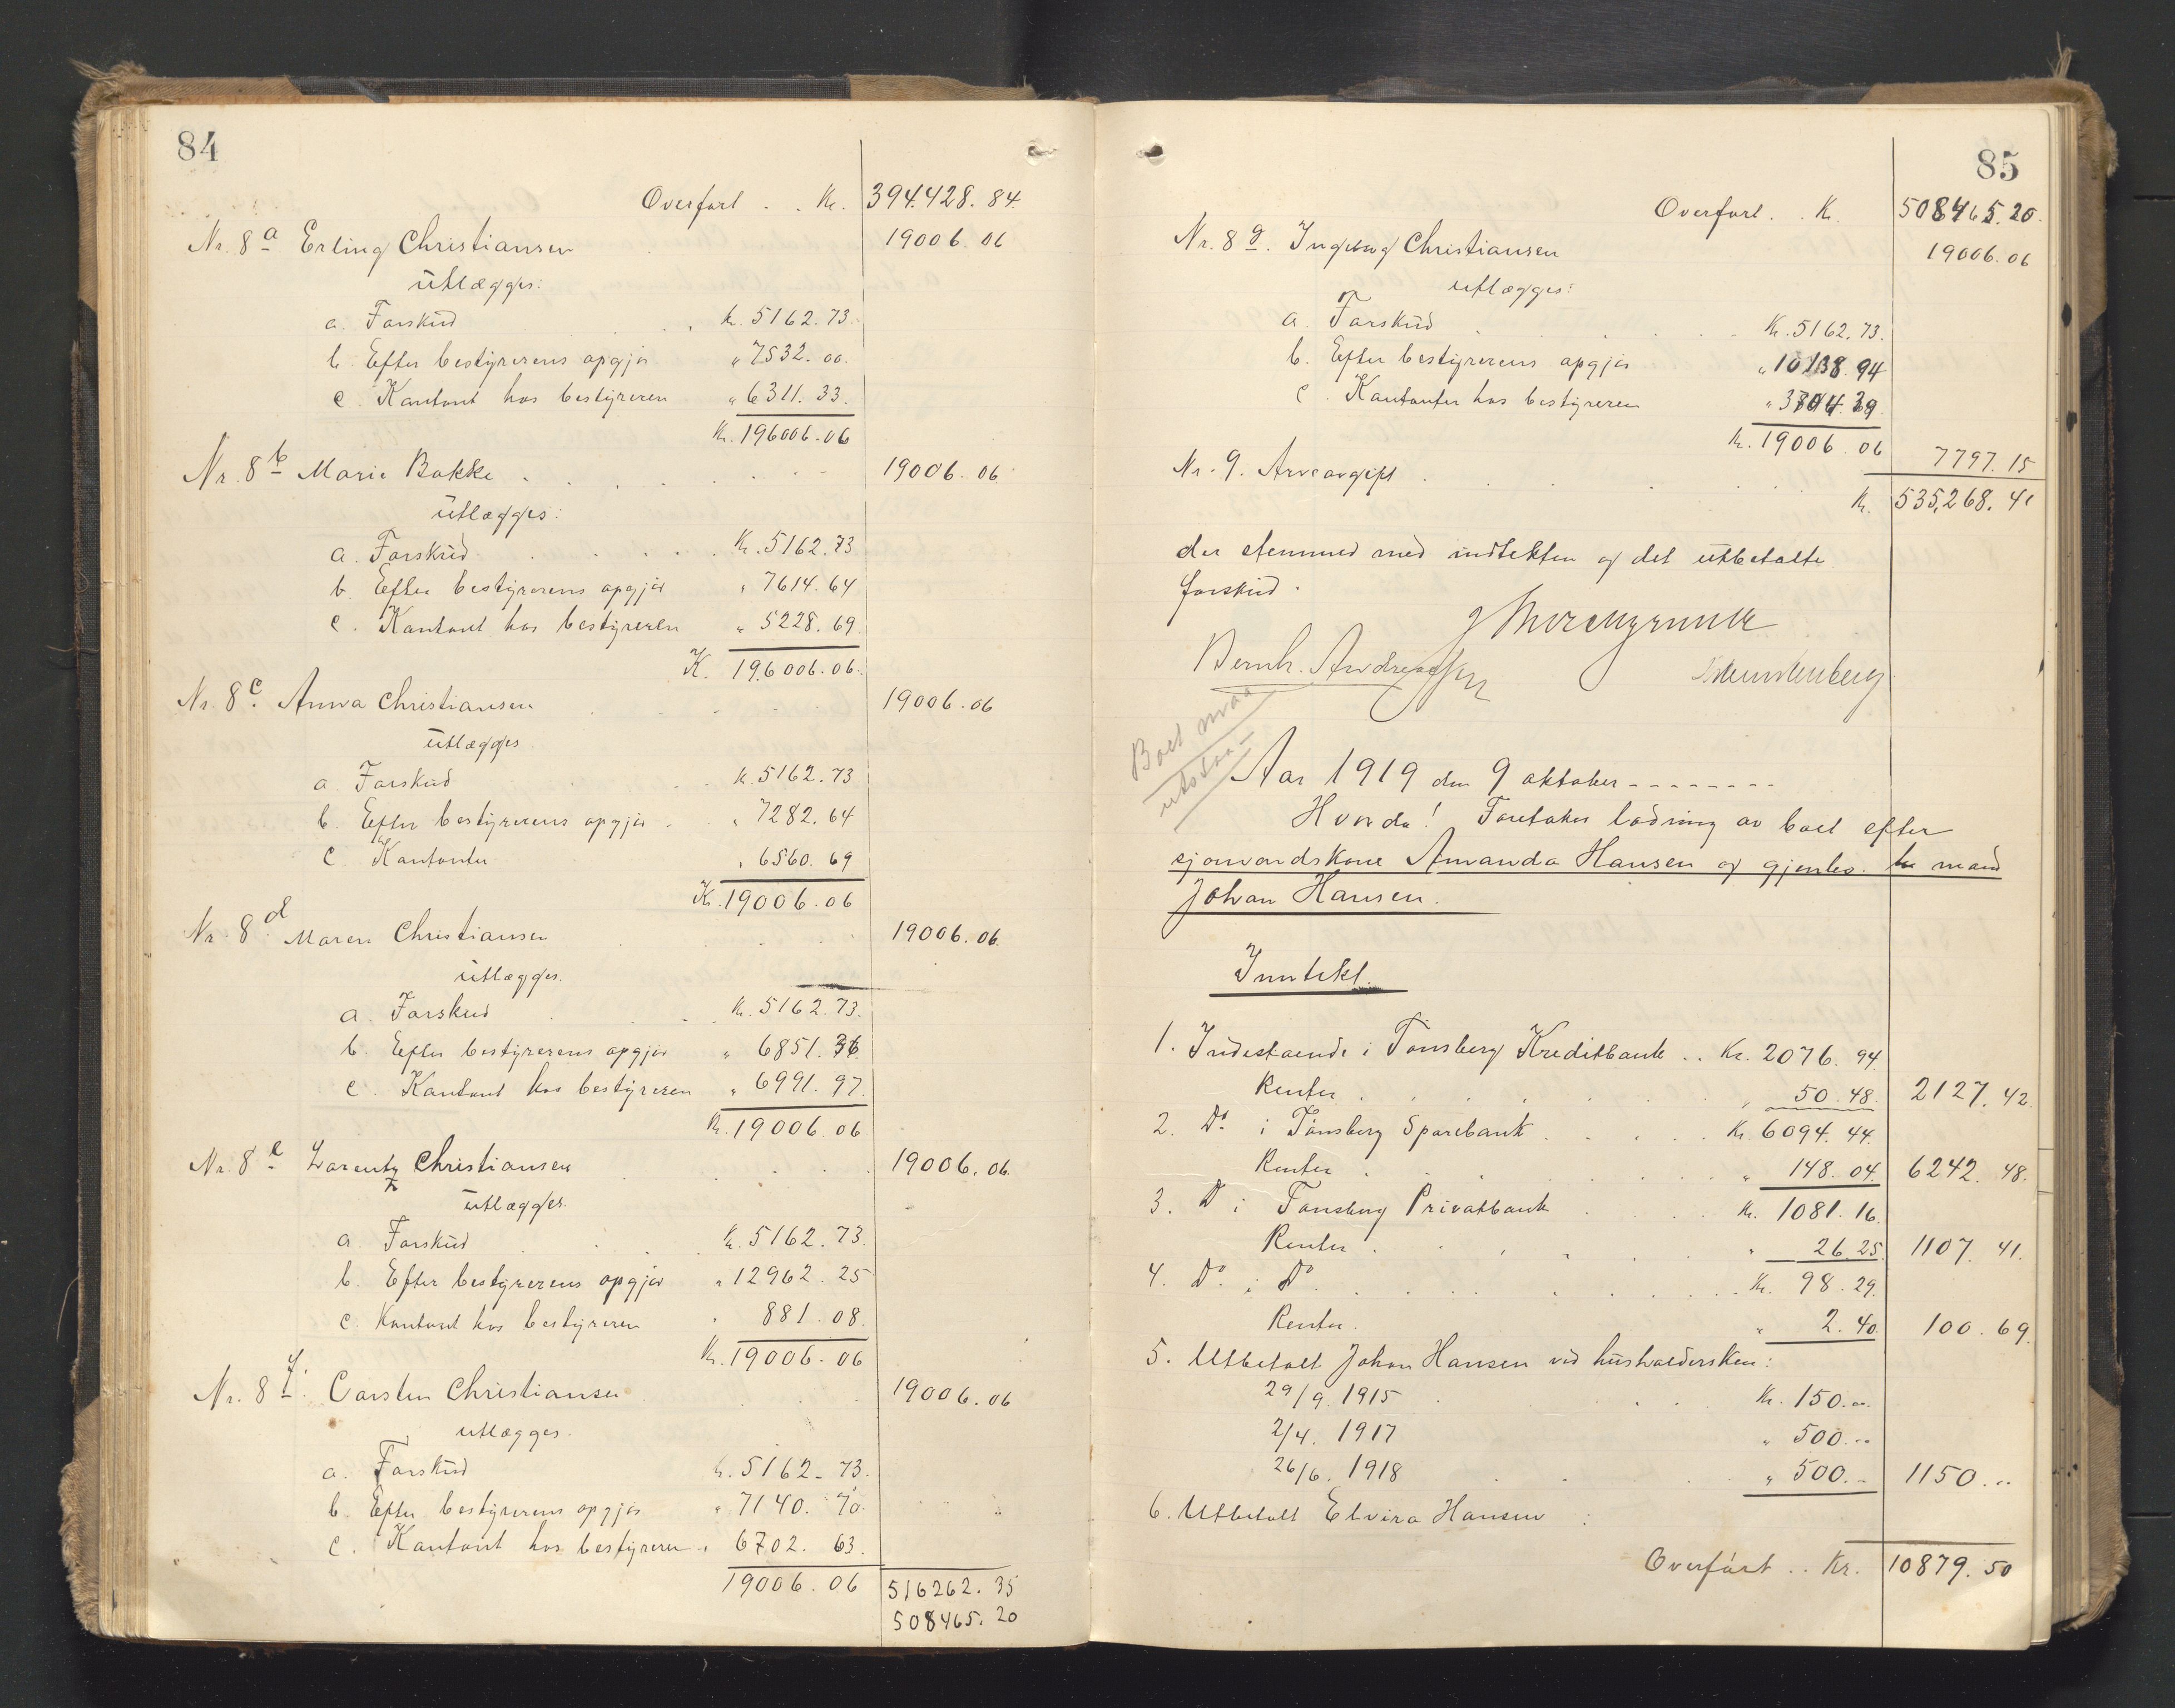 84
Overført . . Kr. 394.428. 84.
Nr. 8a Erling Christiansen 19006. 06
utlægges:
a. Forskud . Kr. 5162. 73.
b. Efter bestyrerens opgjør " 7532. 00.
c. Kontant hos bestyreren " 6311. 33.
Kr. 196006.06
Nr. 8b Marie Bakke . . . . 19006. 06
utlægges:
a. Forskud . . . . Kr. 5162. 73
b. Efter bestyrerens opgjør " 7614. 64
c. Kontant hos bestyreren " 5228. 69.
K. 196006.06.
Nr. 8c. Anna Christiansen 19006.06
utlægges.
a. Forskud . Kr. 5162. 73
b. Efter bestyrerens opgjør . " 7282. 64
c. Kontanter " 6560. 69
Kr. 19006.06
Nr. 8d. Maren Christiansen 19006. 06.
utlægges.
a. Forskud . . Kr. 5162. 73.
b. Efter bestyrerens opgjør " 6851. 36
c. Kontant hos bestyreren " 6991. 97.
Kr. 19006.06
Nr. 8e Lorentz Christiansen . . . 19006. 06.
utlægges.
a. Forskud . . . Kr. 5162. 73.
b. Efter bestyrerens opgjør " 12962. 25
c. Kontant hos bestyreren " 881. 08.
Kr. 19006.06
Nr. 8f. Carsten Christiansen 19006. 06
utlægges.
a. Forskud Kr. 5162. 73.
b. Efter bestyrerens opgjør " 7140. 70.
c. Kontant hos bestyreren " 6702. 63.
19006. 06 516262. 35
508465. 20
85
Overført . . Kr. 508465.20.
Nr. 8g. Ingeborg Christiansen 19006.06
utlægges:
a. Forskud . . . Kr. 5162. 73.
b. Efter bestyrerens opgjør " 10138. 94
c. Kontanter hos bestyreren " 3704. 39
Kr. 19006. 06
Nr. 9. Arveavgift . . . . 7797. 15
Kr. 535,268. 41
der stemmed med indtekten og det utbetalte
forskud.
Bernh. Andreassen
Boet maa
utstaa
Aar 1919 den 9 oktober - - - - - - - -
Hvorda! Foretokes lodning av boet efter
sjømandskone Amanda Hansen og gjenlev. mand
Johan Hansen.
Inntekt.
1. Indestaaende i Tønsberg Kreditbank . . Kr. 2076. 94.
Renter . . . . . . " 50. 48. 2127. 42.
2. Do. i Tønsberg Sparebank . . . . Kr. 6094. 44.
Renter . . . . . " 148. 04. 6242. 48.
3. D i Tønsberg Privatbank . . . . Kr. 1081. 16.
Renter . . . . . " 26.25. 1107. 41.
4. Do. i Do. . . . . . . Kr. 98. 29.
Renter. " 2. 40. 100. 69.
5. Utbetalt Johan Hansen ved husholdersken:
29/9. 1915 . . . Kr. 150. --
2/4. 1917 " 500. --
26/6. 1918 . . . " 500. -- 1150. ..
6. Utbetalt Elvira Hansen :
Overført . . Kr. 10879. 50